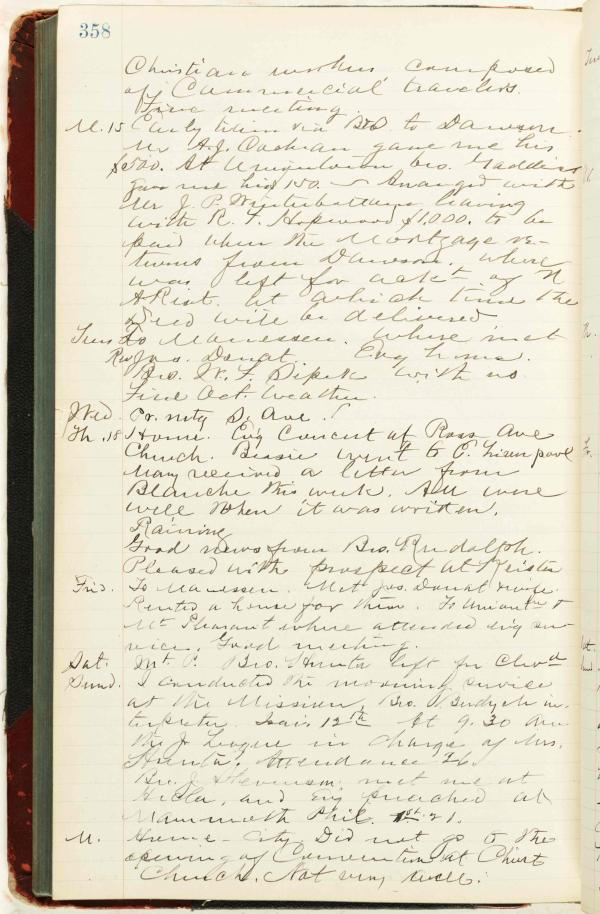 358
Christian workers composed
of Commercial travelers.
Fine meeting.
M. 15 Early train via B&O to Dawson.
Mr A.J. Cochran gave me his
$500. At Uniontown Geo. Gaddis
gave me his 150. — Arranged with
Mr J. P. Winterbottom leaving
with R. F. Hopwood $1,000. to be
paid when the Mortgage re-
turns from Dawson, where
was left for ackt of
at which time the
Deed will be delivered
Tues To Monessen. Where met
Rev Jas. Donat. Evg home.
Bro. W. F. with us
Fine Oct. Weather.
Wed. Pr. mtg S. Ave.
Th. 18 Home. Evg Concert at Ross Ave
Church. Bessie went to E. Liverpool
May received a letter from
Blanche this week. All were
well when it was written.
Raining
Good news from Bro. Rudolph.
Pleased with prospect at Keister
Frid. To Monessen. Met Jas. Donat & wife.
Rented a house for them. To &
Mt Pleasant where attended evg ser-
vice. Good meeting.
Sat. Mt. P. Bro. Hunter left for
Sund. I conducted the morning service
at the Mission, Bro. in-
terpreter. Isai. 12th. At 9.30 am
the Jr League in charge of Mrs.
Hunter. Attendance 26.
Bro. J. Stevenson met me at
Hecla, and Evg preached at
Mammoth Phil. 1st 21.
M. Home - City. Did not go to the
opening of Convention at Christ
Church. Not very well.